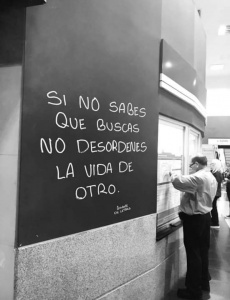 SI NO SABES
QUE BUSCAS
NO DESORDENES
LA VIDA DE
OTRO.